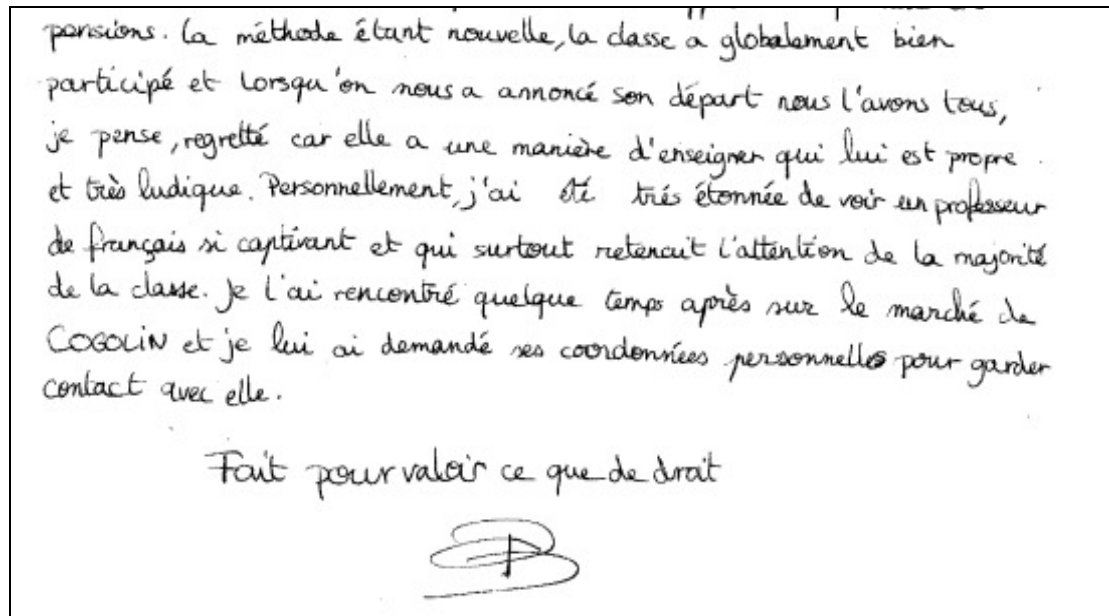 pensions. La méthode étant nouvelle, la classe a globalement bien
participé et lorsqu'on nous a annoncé son départ nous l'avons tous,
je pense, regretté car elle a une manière d'enseigner qui lui est propre
et très ludique. Personnellement, j'ai été très étonnée de voir un professeur
de français si captivant et qui surtout retenait l'attention de la majorité
de la classe. Je l'ai rencontré quelque temps après sur le marché de
COGOLIN et je lui ai demandé ses coordonnées personnelles pour garder
contact avec elle.
Fait pour valoir ce que de droit